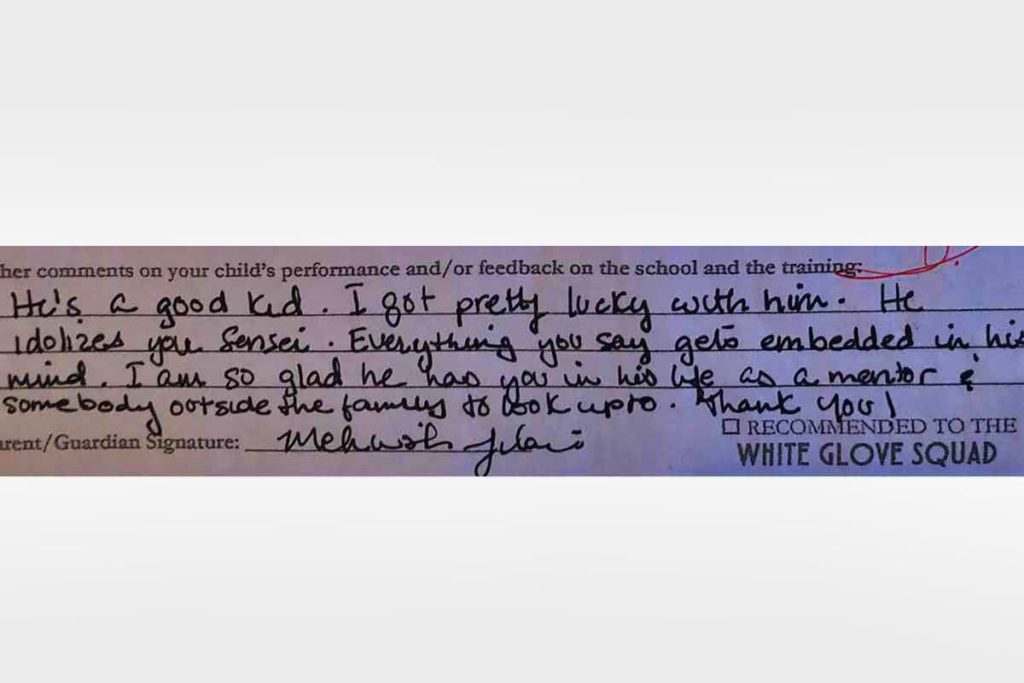 her comments on your child's performance and/or feedback on the school and the training:
He's a good kid. I got pretty lucky with him. He
idolizes you Sensei. Everything you say gets embedded in his
mind. I am so glad he has you in his life as a mentor &
somebody outside the family to look upto. Thank you!
rent/Guardian Signature: Mehwish
☐ RECOMMENDED TO THE
WHITE GLOVE SQUAD